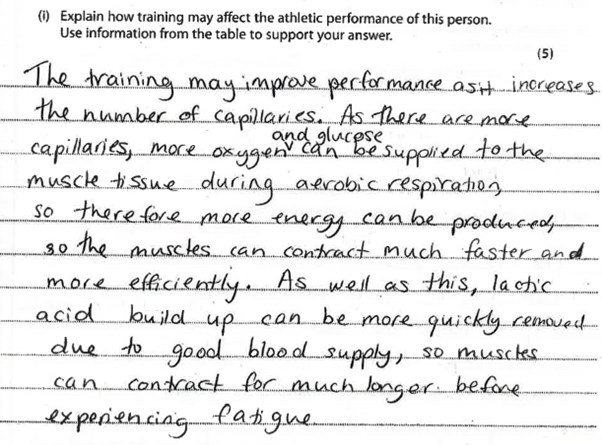 (i) Explain how training may affect the athletic performance of this person.
Use information from the table to support your answer.
(5)
The training may improve performance as it increases
the number of capillaries. As there are more
and glucose
capillaries, more oxygen can be supplied to the
muscle tissue during aerobic respiration,
so therefore more energy can be produced,
so the muscles can contract much faster and
more efficiently. As well as this, lactic
acid build up can be more quickly removed
due to good blood supply, so muscles
can contract for much longer before
experiencing fatigue.